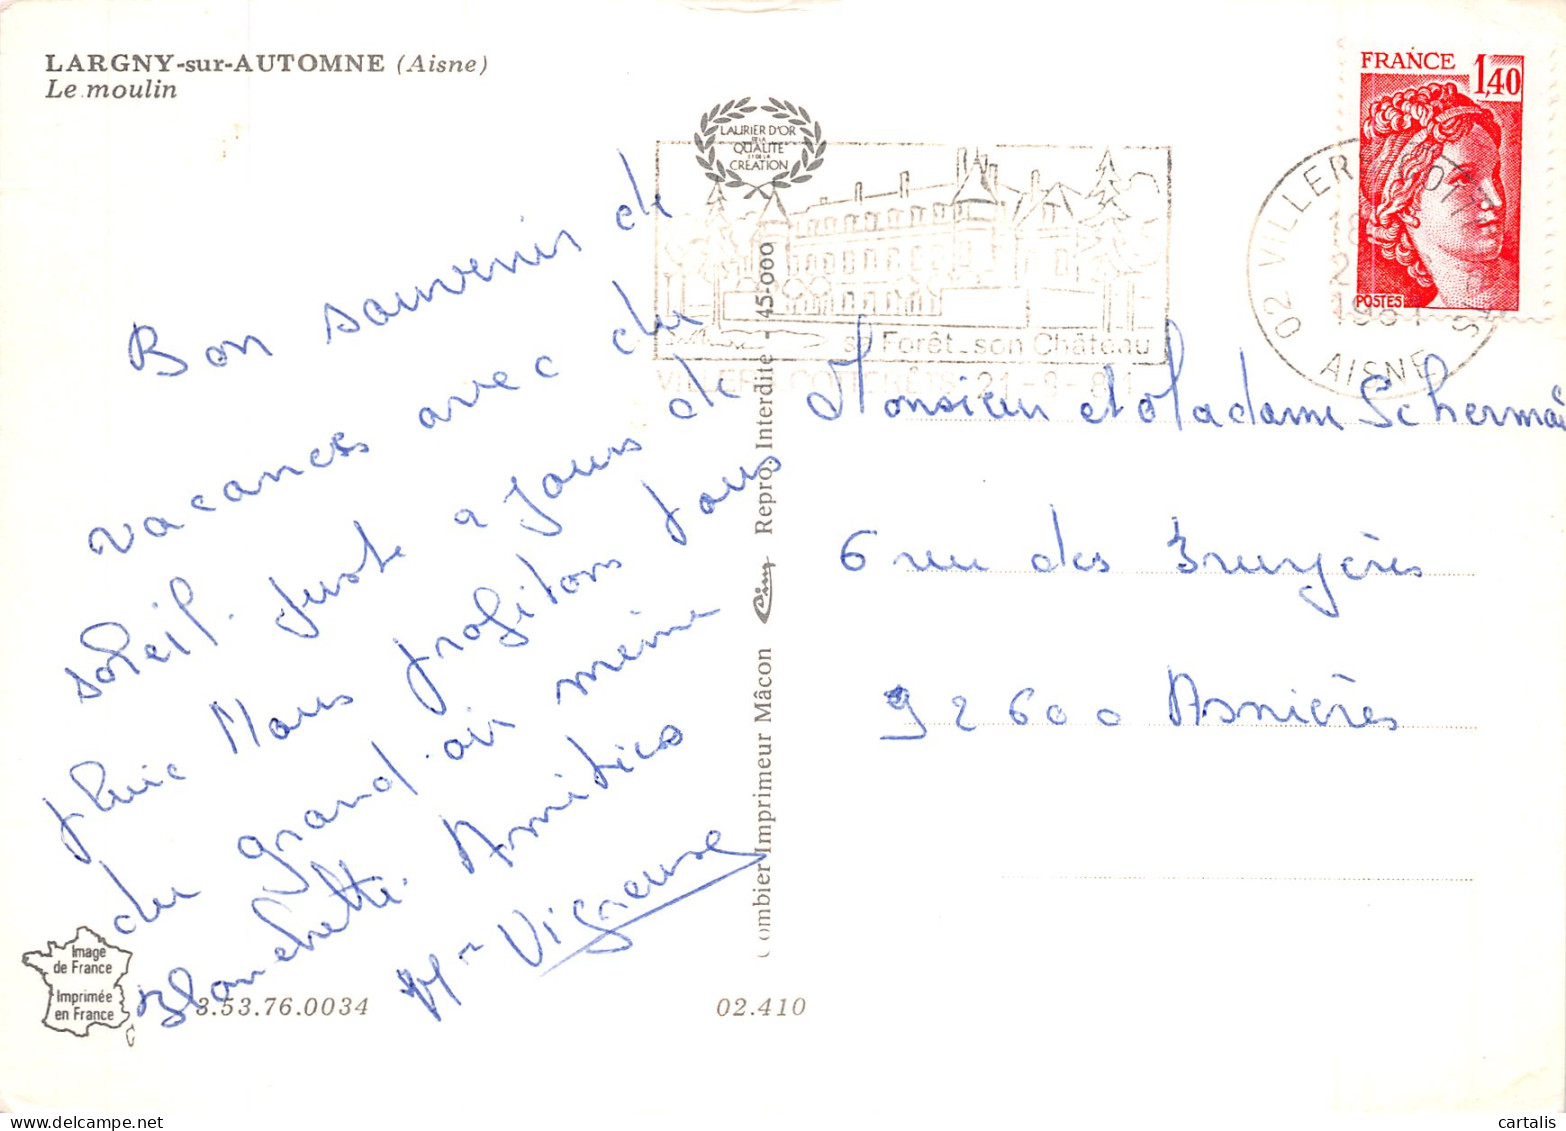 LARGNY-sur-AUTOMNE (Aisne)
Le moulin
LAURIER D'OR
DE LA
QUALITE
ET DE LA
CREATION
FRANCE 1,40
POSTES
02 VILLERS COTT
1981
AISNE
sa Forêt_son Château
VILLERS COTTERÊTS 21-9-81
Bon souvenir de
vacances avec du
soleil. juste a jours de
pluie Nous profitons tous
du grand. air même
Blanchette. Amitiés
Mr Vigneuse
Monsieur et Madame Scherma
6 rue des Bruyères
92600 Asnières
Combier Imprimeur Mâcon Cim Repro. Interdite - 45-000
Image
de France
Imprimée
en France
3.53.76.0034
02.410
cartalis